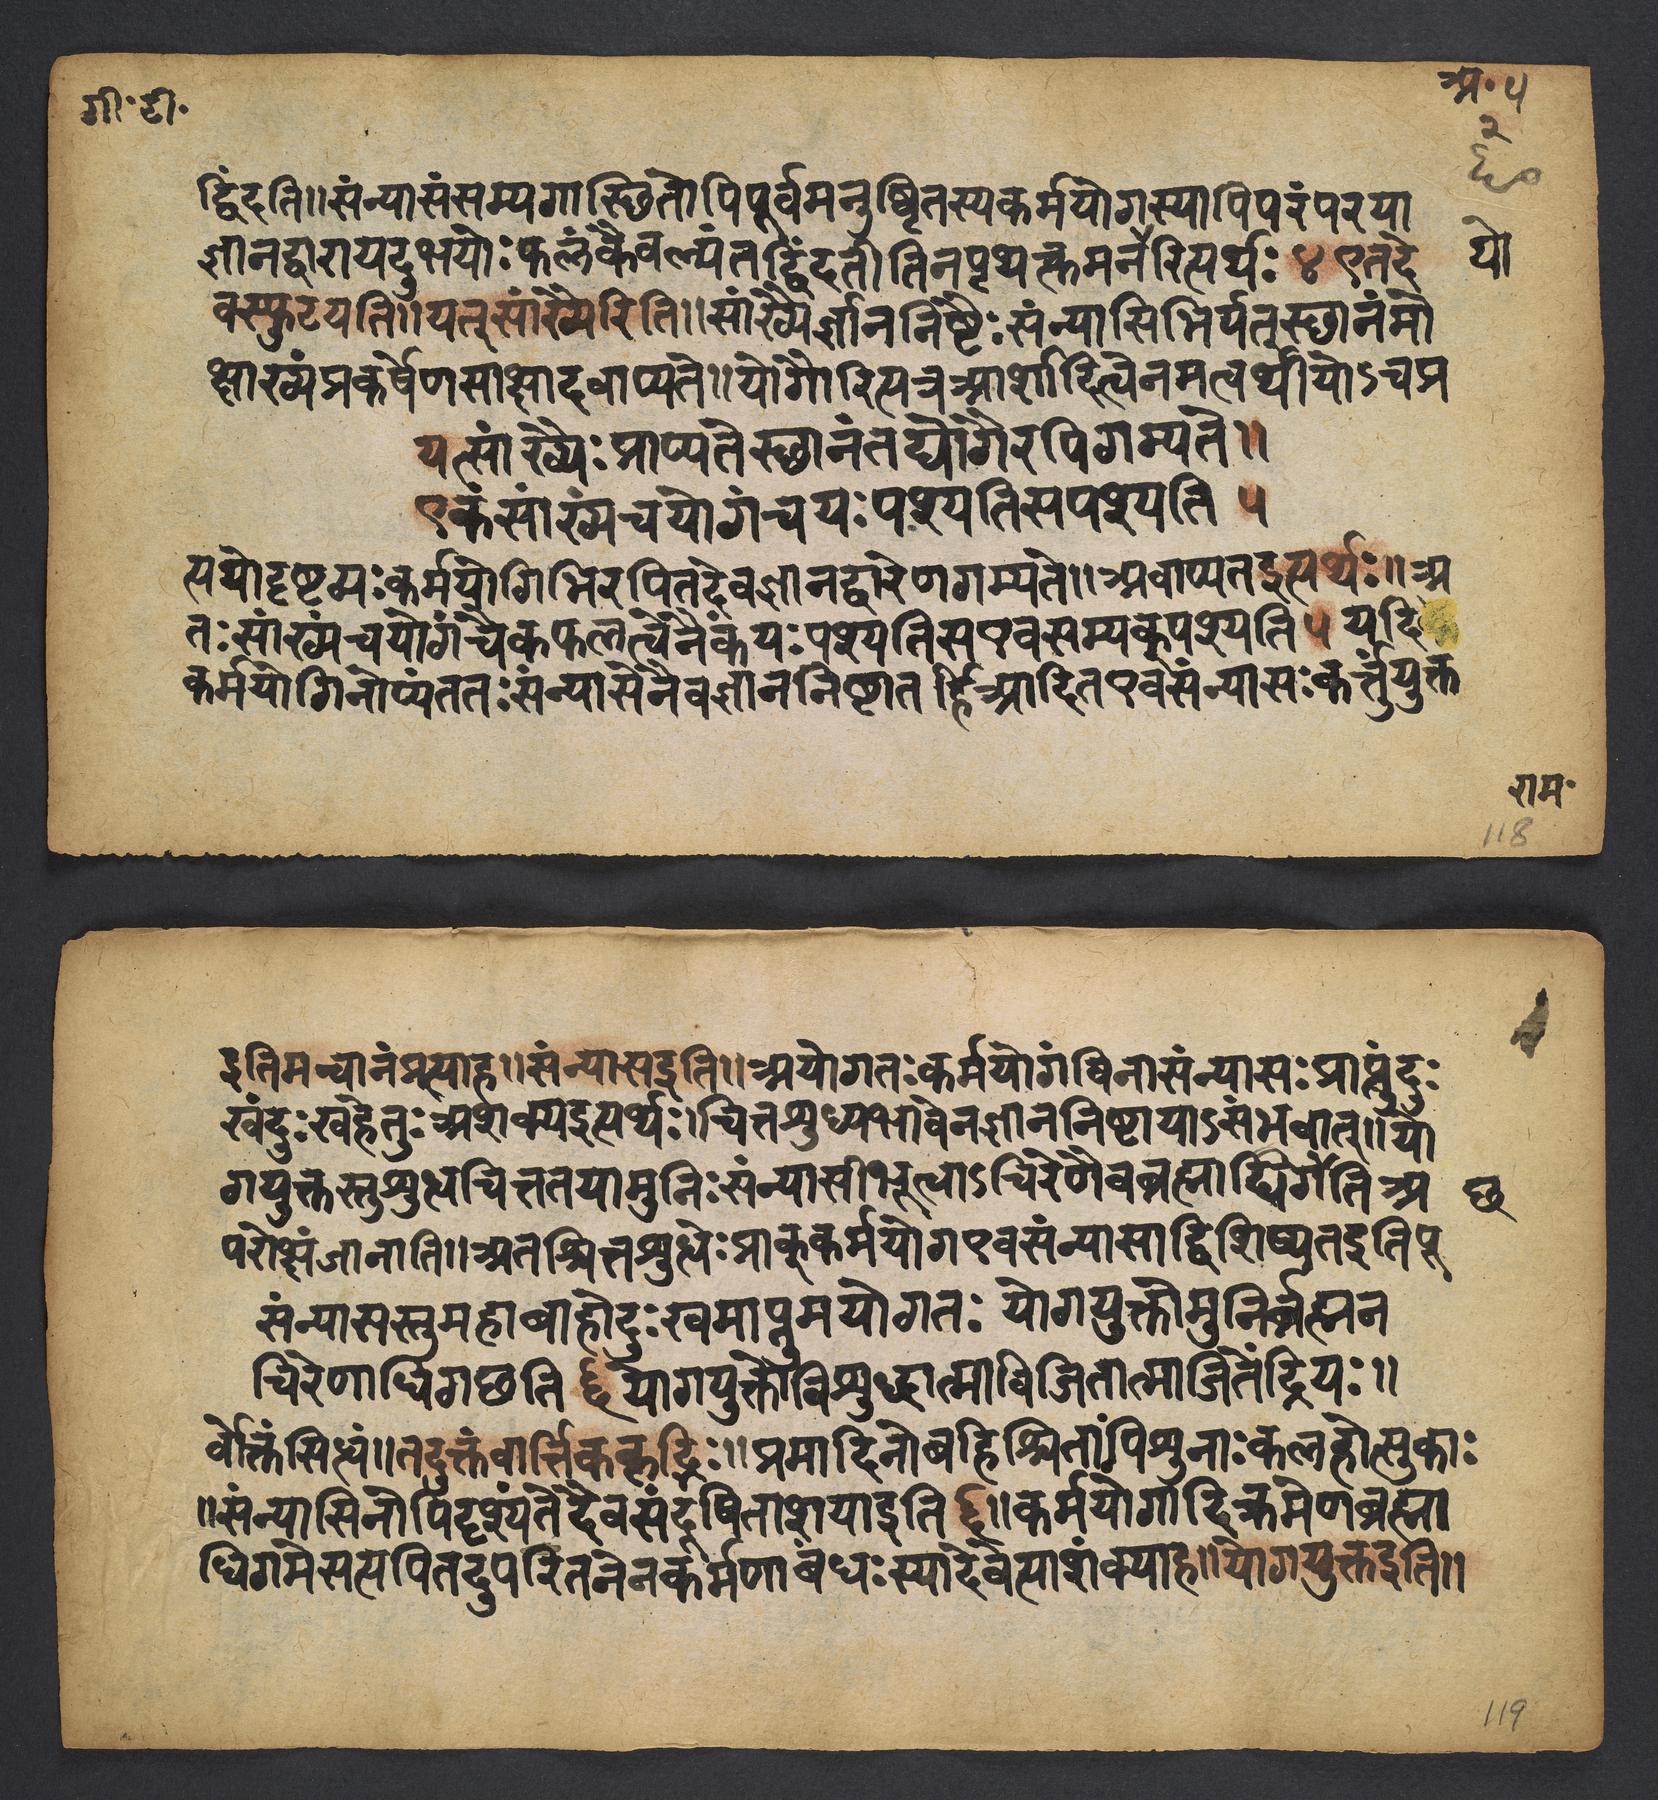 गी॰ टी॰
अ॰ ५
२
६०
द्विंदति॥संन्यासंसम्यगास्छितोपिपूर्वमनुष्ठितस्यकर्मयोगस्यापिपरंपरया
ज्ञानद्वारायदुभयोःफलंकैवल्यंतद्विंदतीतिनपृथक्त्कमनेरित्यर्थः ४ एतदे
यो
वस्फुटयति॥यत्सांख्यैरिति॥सांख्यैर्ज्ञाननिष्टैःसंन्यासिभिर्यत्स्छानंमो
क्षाख्यंप्रकर्षेणसाक्षादवाप्यते॥योगैरित्यत्रआर्शादित्वेनमत्वर्थीयोऽचप्र
यत्सांख्यैःप्राप्यतेस्छानंतद्योगैरपिगम्यते॥
एकंसांख्यंचयोगंचयःपश्यतिसपश्यति ५
त्ययोदृष्टव्यःकर्मयोगिभिरपितदेवज्ञानद्वारेणगम्यते॥अवाप्यतइत्यर्थः॥अ
तःसांख्यंचयोगंचैकफलत्वेनैकंयःपश्यतिसएवसम्यक्पश्यति ५ यदि
कर्मयोगिनोप्यंततःसंन्यासेनैवज्ञाननिष्टातर्हिआदितएवसंन्यासःकर्त्तुंयुक्त
राम॰
118
इतिमन्वानंप्रत्याह॥संन्यासइति॥अयोगतःकर्मयोगंविनासंन्यासःप्राप्तुंदुः
खंदुःखहेतुःअशक्यइत्यर्थः।चित्तशुध्यभावेनज्ञाननिष्टायाऽसंभवात्॥यो
गयुक्तस्तुशुत्धचित्ततयामुनिःसंन्यासीभूत्वाऽचिरेणैवब्रह्माधिगंतिअ
छ
परोक्षंजानाति॥अतश्चित्तशुत्धेःप्राक्कर्मयोगएवसंन्यासाद्विशिष्यतइतिपू
संन्यासस्तुमहाबाहोदुःखमाप्तुमयोगतः योगयुक्तोमुनिर्ब्रह्मन
चिरेणाधिगछति ६ योगयुक्तोविशुद्धात्माविजितात्माजितेंद्रियः॥
र्वोक्तंसित्धं॥तदुक्तंवार्त्तिककृद्भिः॥प्रमादिनोबहिश्चिताःपिशुनाःकलहोत्सुकाः
॥संन्यासिनोपिदृश्यंतेदैवसंदूषिताशयाइति ६॥कर्मयोगादिक्रमेणब्रह्मा
धिगमेसत्यपितदुपरितनेनकर्मणाबंधःस्यादेवेत्याशंक्याह॥योगयुक्तइति॥
119